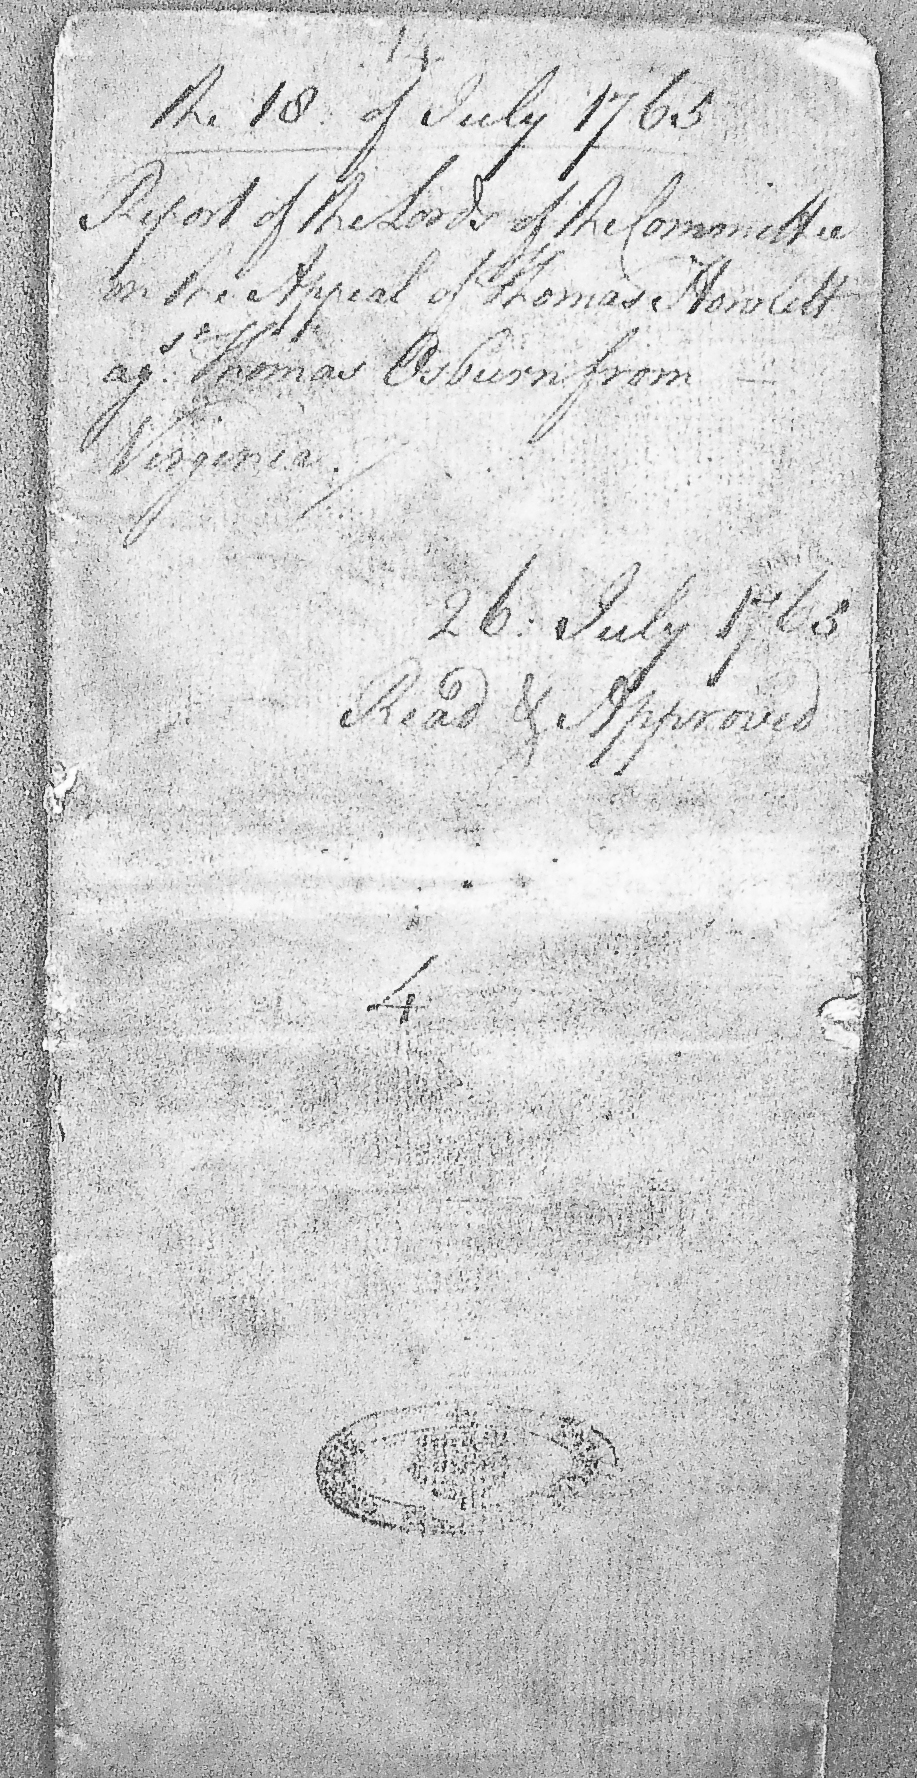 14
the 18. of July 1763
Report of the Lords of the Committee
on the Appeal of Thomas Howlett
agst. Thomas Osburn from
Virginia.
26: July 1763
Read & Approved
4